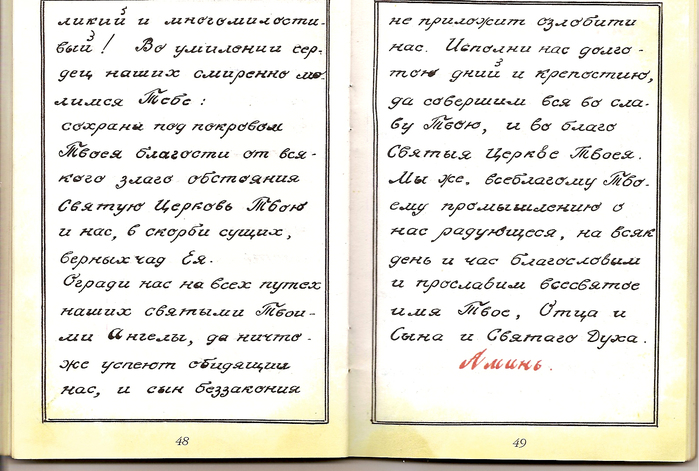 ликий и многомилости-
вый! Во умилении сер-
дец наших смиренно мо-
лимся Тебе:
сохрани под покровом
Твоея благости от вся-
кого злаго обстояния
Святую Церковь Твою
и нас, в скорби сущих,
верных чад Ея.
Огради нас на всех путех
наших святыми Твои-
ми Ангелы, да ничто-
же успеют обидящии
нас, и сын беззакония
48
не приложит озлобити
нас. Исполни нас долго-
тою дний и крепостию,
да совершим вся во сла-
ву Твою, и во благо
Святыя Церкве Твоея.
Мы же, всеблагому Тво-
ему промышлению о
нас радующеся, на всяк
день и час благословим
и прославим всесвятое
имя Твое, Отца и
Сына и Святаго Духа.
Аминь.
49